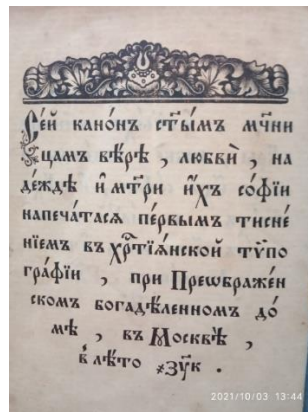 Се́й кано́нъ ст҃ы́мъ мч҃ни
цамъ вѣ́рѣ , любвѝ , на
де́ждѣ и҆ мт҃ри и҆́хъ софі́и
напеча́тася пе́рвымъ тисне́
нїемъ въ хрⷭ҇тїя́нской тѵ́по
гра́фїи , при Преѡбраже́н
скомъ богадѣ́ленномъ до́
мѣ , въ Москвѣ̀ ,
в̾ лѣ́то ҂зу҃к .
2021/10/03 13:44